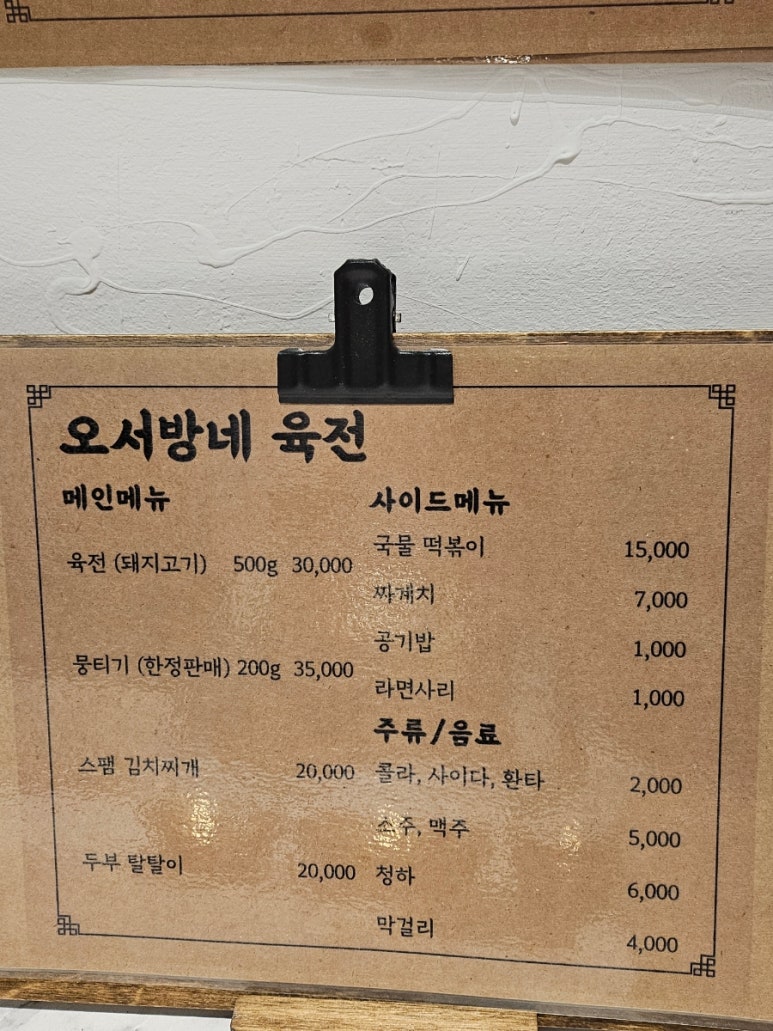 오서방네 육전
메인메뉴
육전 (돼지고기) 500g 30,000
뭉티기 (한정판매) 200g 35,000
스팸 김치찌개 20,000
두부 탈탈이 20,000
사이드메뉴
국물 떡볶이 15,000
짜계치 7,000
공기밥 1,000
라면사리 1,000
주류/음료
콜라, 사이다, 환타 2,000
소주, 맥주 5,000
청하 6,000
막걸리 4,000